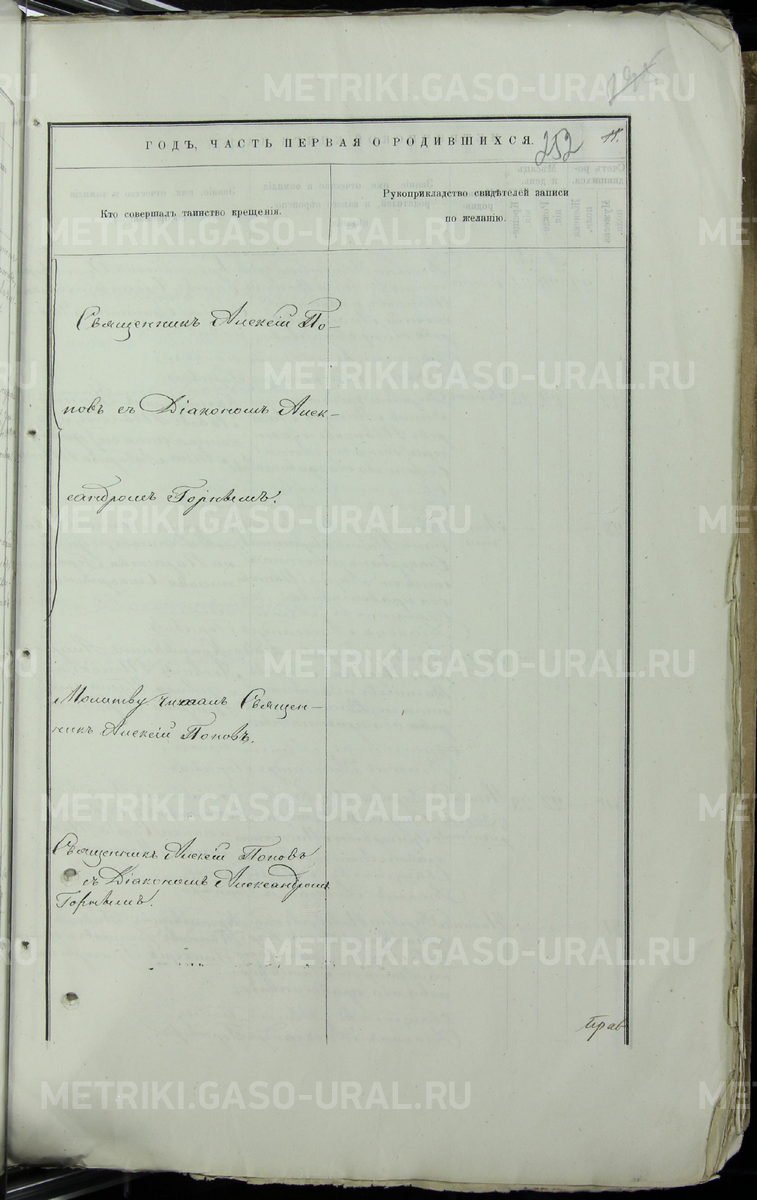 ГОДЪ, ЧАСТЬ ПЕРВАЯ О РОДИВШИХСЯ.
252
11.
Кто совершалъ таинство крещенія.
Рукоприкладство свидѣтелей записи
по желанію.
Священникъ Алексій По-
повъ съ Діакономъ Алек-
сандромъ Горнымъ.
Молитву читалъ Священ-
никъ Алексій Поповъ.
Священникъ Алексій Поповъ
съ Діакономъ Александромъ
Горнымъ.
Прав
METRIKI.GASO-URAL.RU